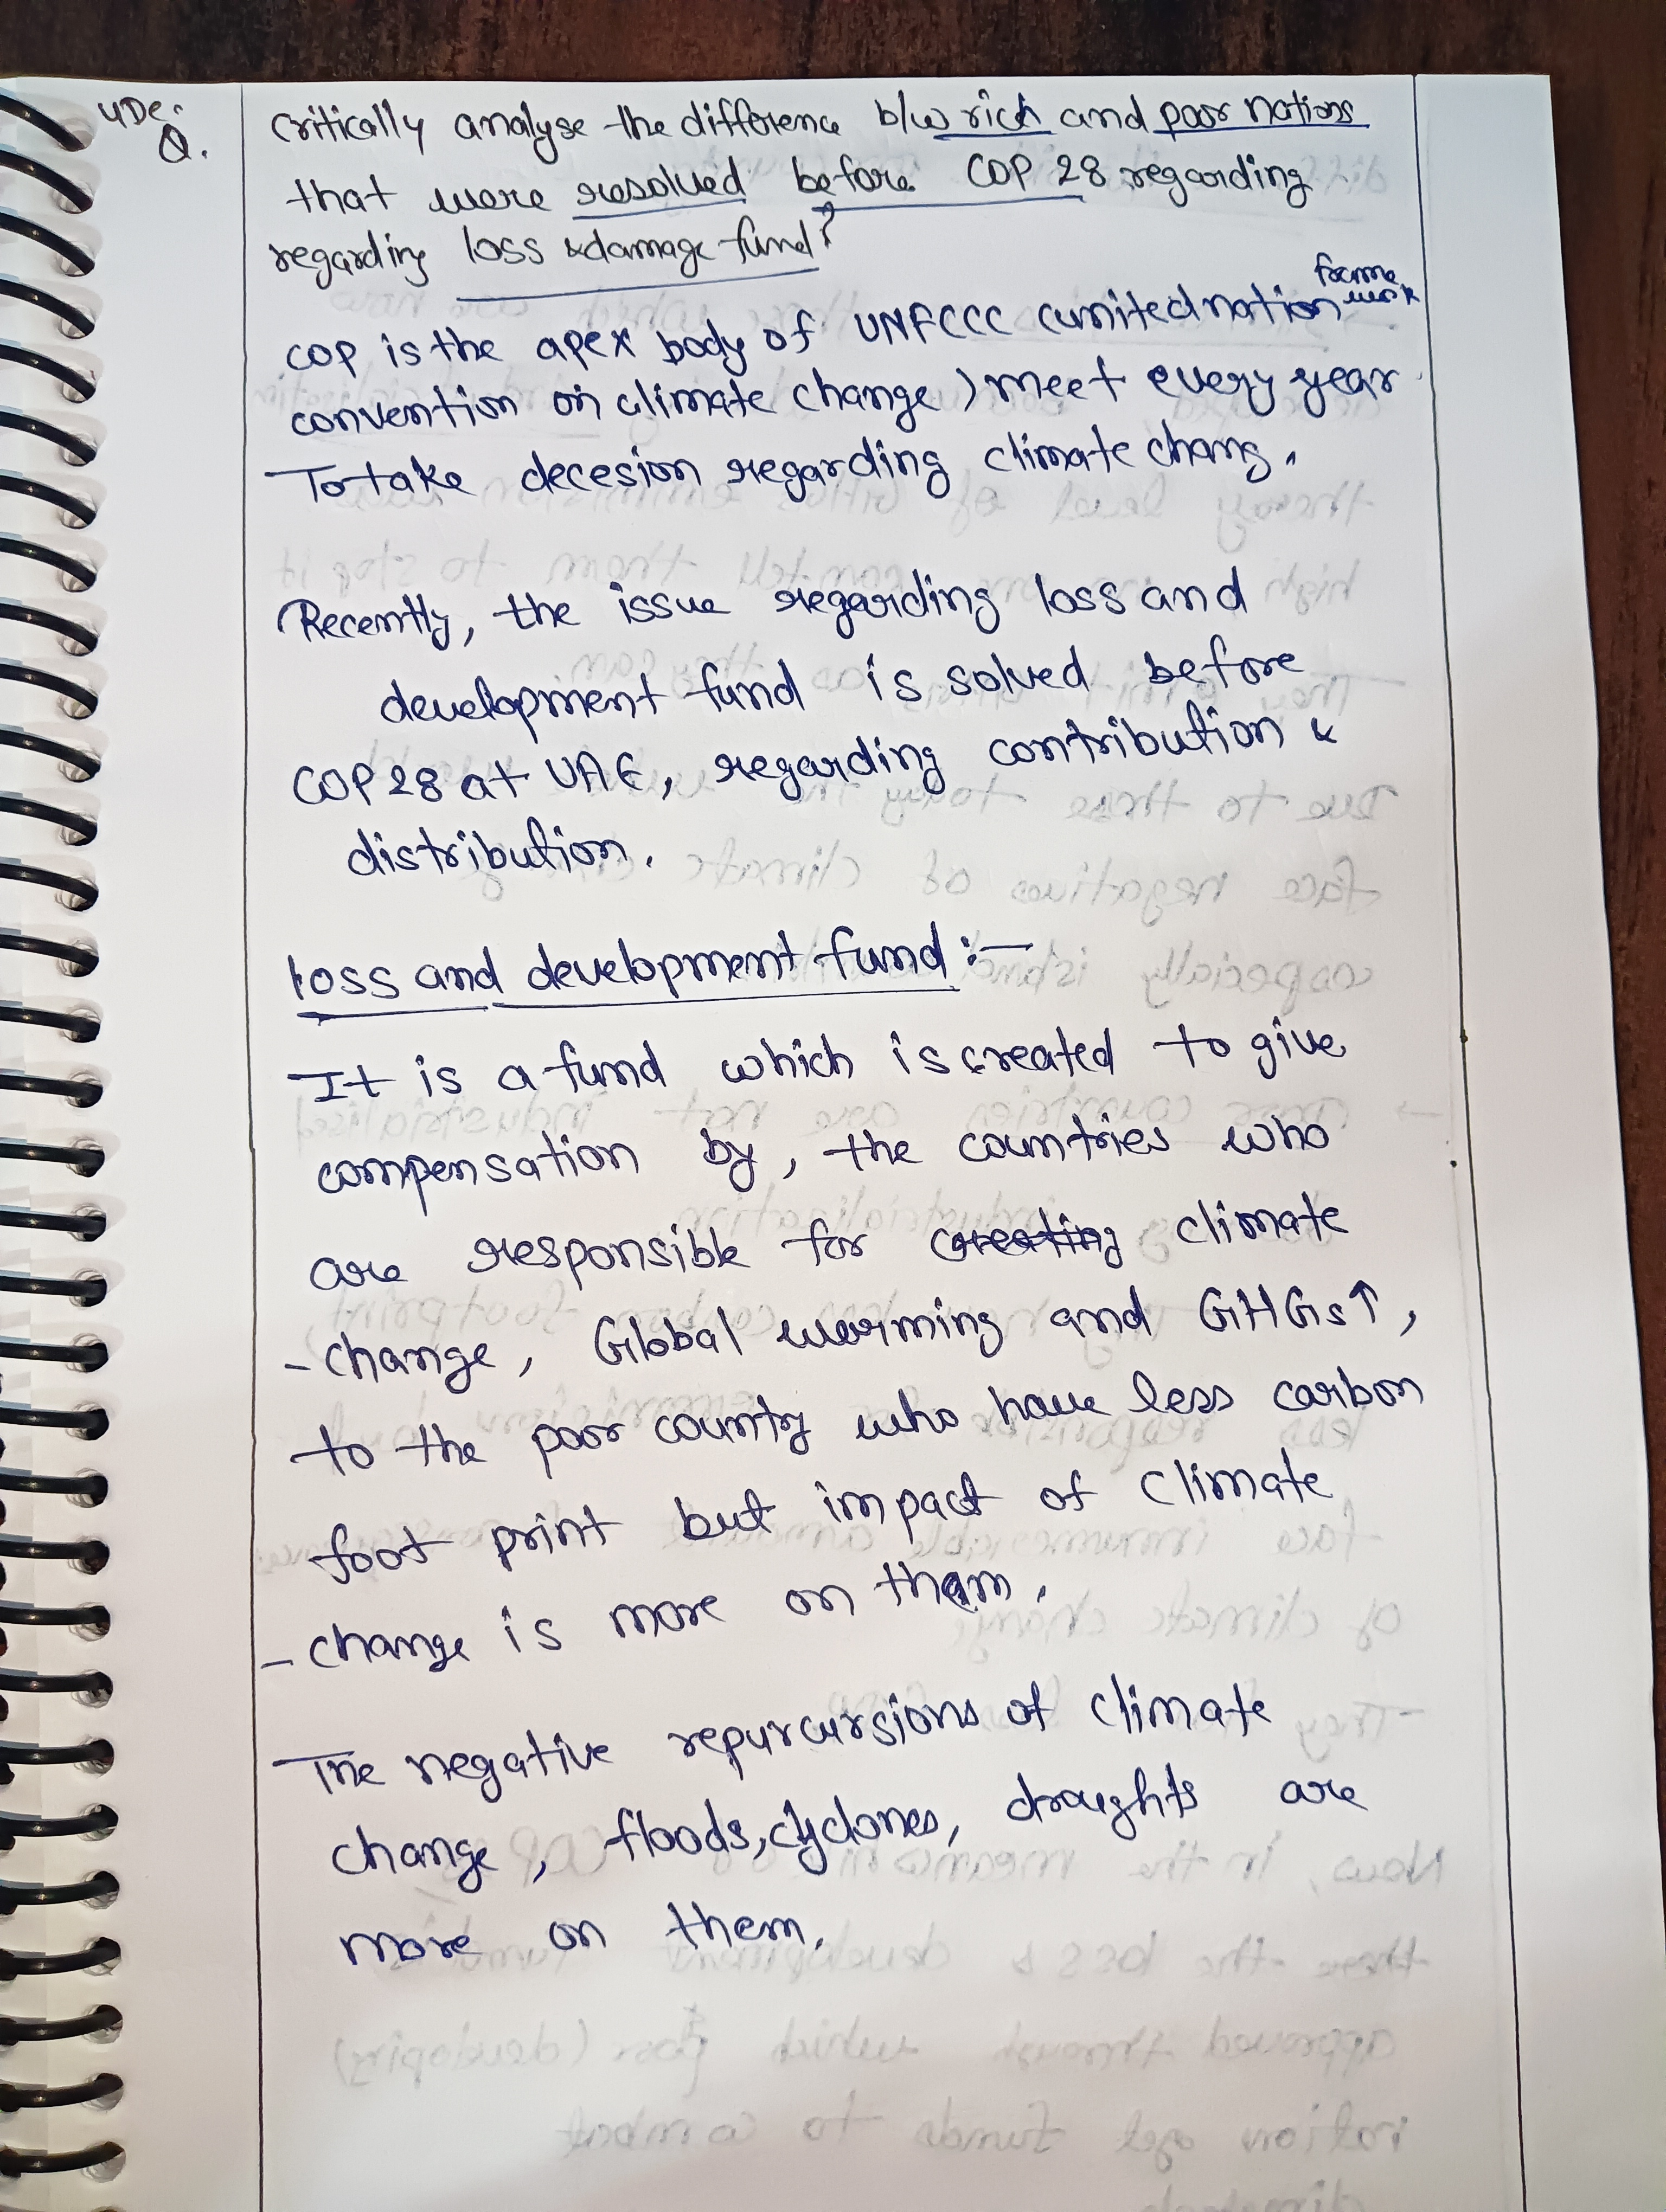 4 Dec.
Q. Critically analyse the difference b/w rich and poor nations
that were resolved before COP 28 regarding
regarding loss & damage fund?
COP is the apex body of UNFCCC (united nation frame work
convention on climate change) meet every year
To take decesion regarding climate chang.
Recently, the issue regarding loss and
development fund is solved before
COP 28 at UAE, regarding contribution &
distribution.
loss and development fund :-
It is a fund which is created to give
compensation by, the countries who
are responsible for creating climate
- change, Global warming and GHGs↑,
to the poor country who have less carbon
foot print but impact of climate
- change is more on them.
The negative repurcursions of climate
change, floods, cyclones, draughts are
more on them.